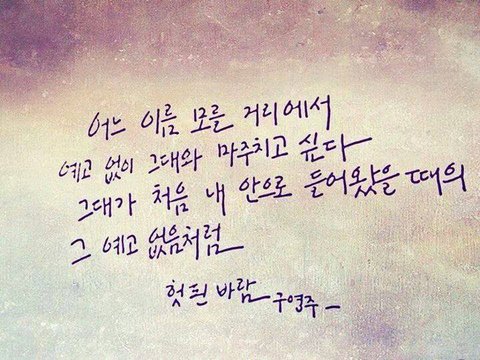 어느 이름 모를 거리에서
예고 없이 그대와 마주치고 싶다
그대가 처음 내 안으로 들어왔을 때의
그 예고 없음처럼
헛된 바람 구영주 -